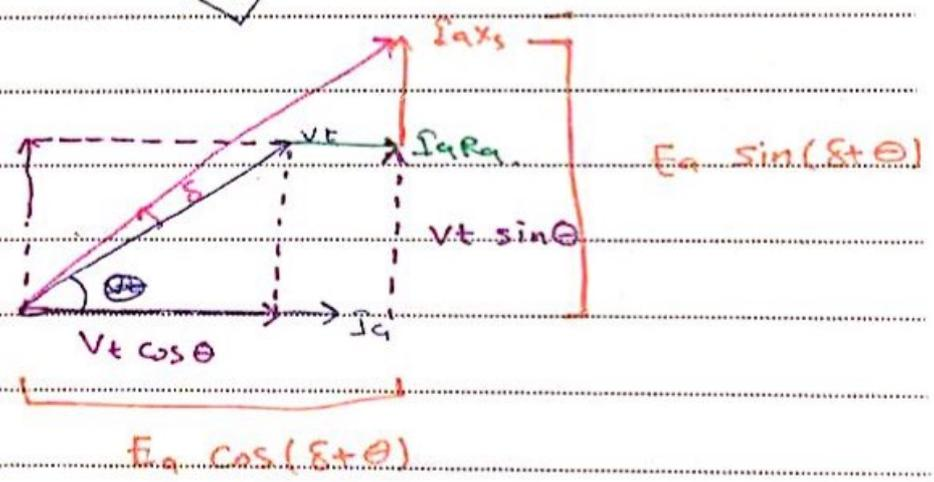 IaXs
Vt
IaRa
Ea sin(δ+θ)
δ
Vt sinθ
Ia
Vt cosθ
Ea cos(δ+θ)